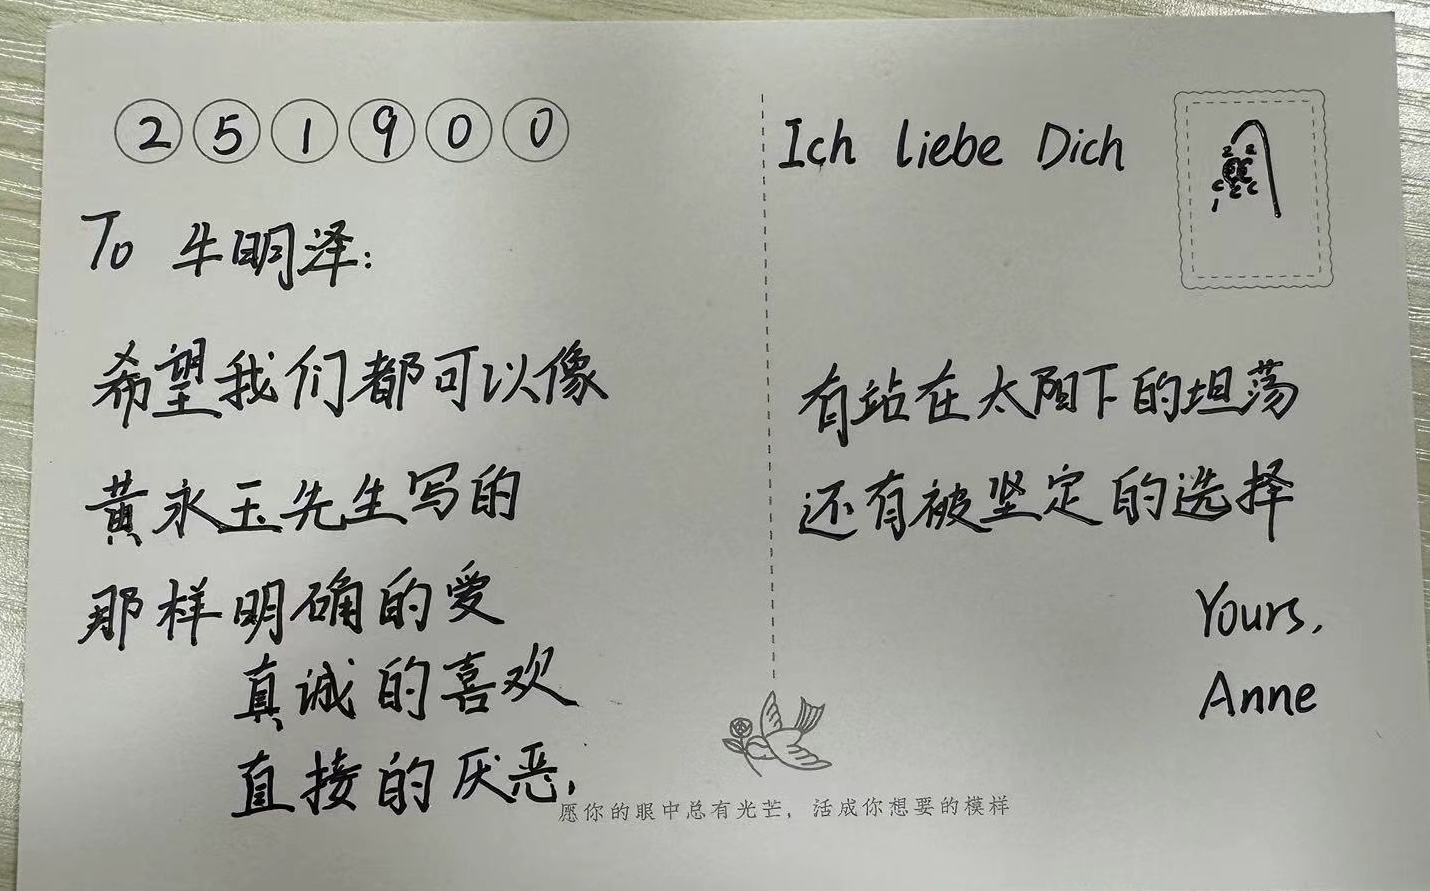 251900
To 牛明泽:
希望我们都可以像
黄永玉先生写的
那样明确的爱
真诚的喜欢
直接的厌恶,
Ich liebe Dich
有站在太阳下的坦荡
还有被坚定的选择
Yours,
Anne
愿你的眼中总有光芒，活成你想要的模样